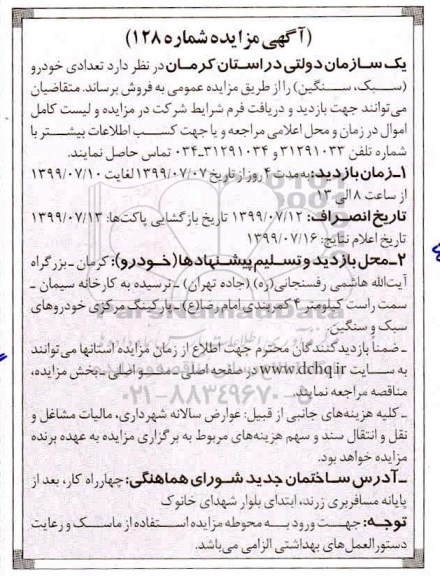 (آگهی مزایده شماره ۱۲۸)
یک سازمان دولتی در استان کرمان در نظر دارد تعدادی خودرو
(سبک، سنگین) را از طریق مزایده عمومی به فروش برساند. متقاضیان
می‌توانند جهت بازدید و دریافت فرم شرایط شرکت در مزایده و لیست کامل
اموال در زمان و محل اعلامی مراجعه و یا جهت کسب اطلاعات بیشتر با
شماره تلفن ۳۱۲۹۱۰۳۳ و ۳۱۲۹۱۰۳۴-۰۳۴ تماس حاصل نمایند.
۱-زمان بازدید: به مدت ۴ روز از تاریخ ۱۳۹۹/۰۷/۰۷ لغایت ۱۳۹۹/۰۷/۱۰
از ساعت ۸ الی ۱۳
تاریخ انصراف: ۱۳۹۹/۰۷/۱۲ تاریخ بازگشایی پاکت‌ها: ۱۳۹۹/۰۷/۱۳
تاریخ اعلام نتایج: ۱۳۹۹/۰۷/۱۶
۲-محل بازدید و تسلیم پیشنهادها (خودرو): کرمان - بزرگراه
آیت‌الله هاشمی رفسنجانی(ره) (جاده تهران) - نرسیده به کارخانه سیمان -
سمت راست کیلومتر ۴ کمربندی امام رضا(ع) - پارکینگ مرکزی خودروهای
سبک و سنگین.
- ضمناً بازدیدکنندگان محترم جهت اطلاع از زمان مزایده استانها می‌توانند
به سایت www.dchq.ir در صفحه اصلی، منوی اصلی - بخش مزایده،
مناقصه مراجعه نمایند.
- کلیه هزینه‌های جانبی از قبیل: عوارض سالانه شهرداری، مالیات مشاغل و
نقل و انتقال سند و سهم هزینه‌های مربوط به برگزاری مزایده به عهده برنده
مزایده خواهد بود.
- آدرس ساختمان جدید شورای هماهنگی: چهارراه کار، بعد از
پایانه مسافربری زرند، ابتدای بلوار شهدای خانوک
توجه: جهت ورود به محوطه مزایده استفاده از ماسک و رعایت
دستورالعمل‌های بهداشتی الزامی می‌باشد.
ParsNamadData
۰۲۱-۸۸۳۴۹۶۷۰-۵